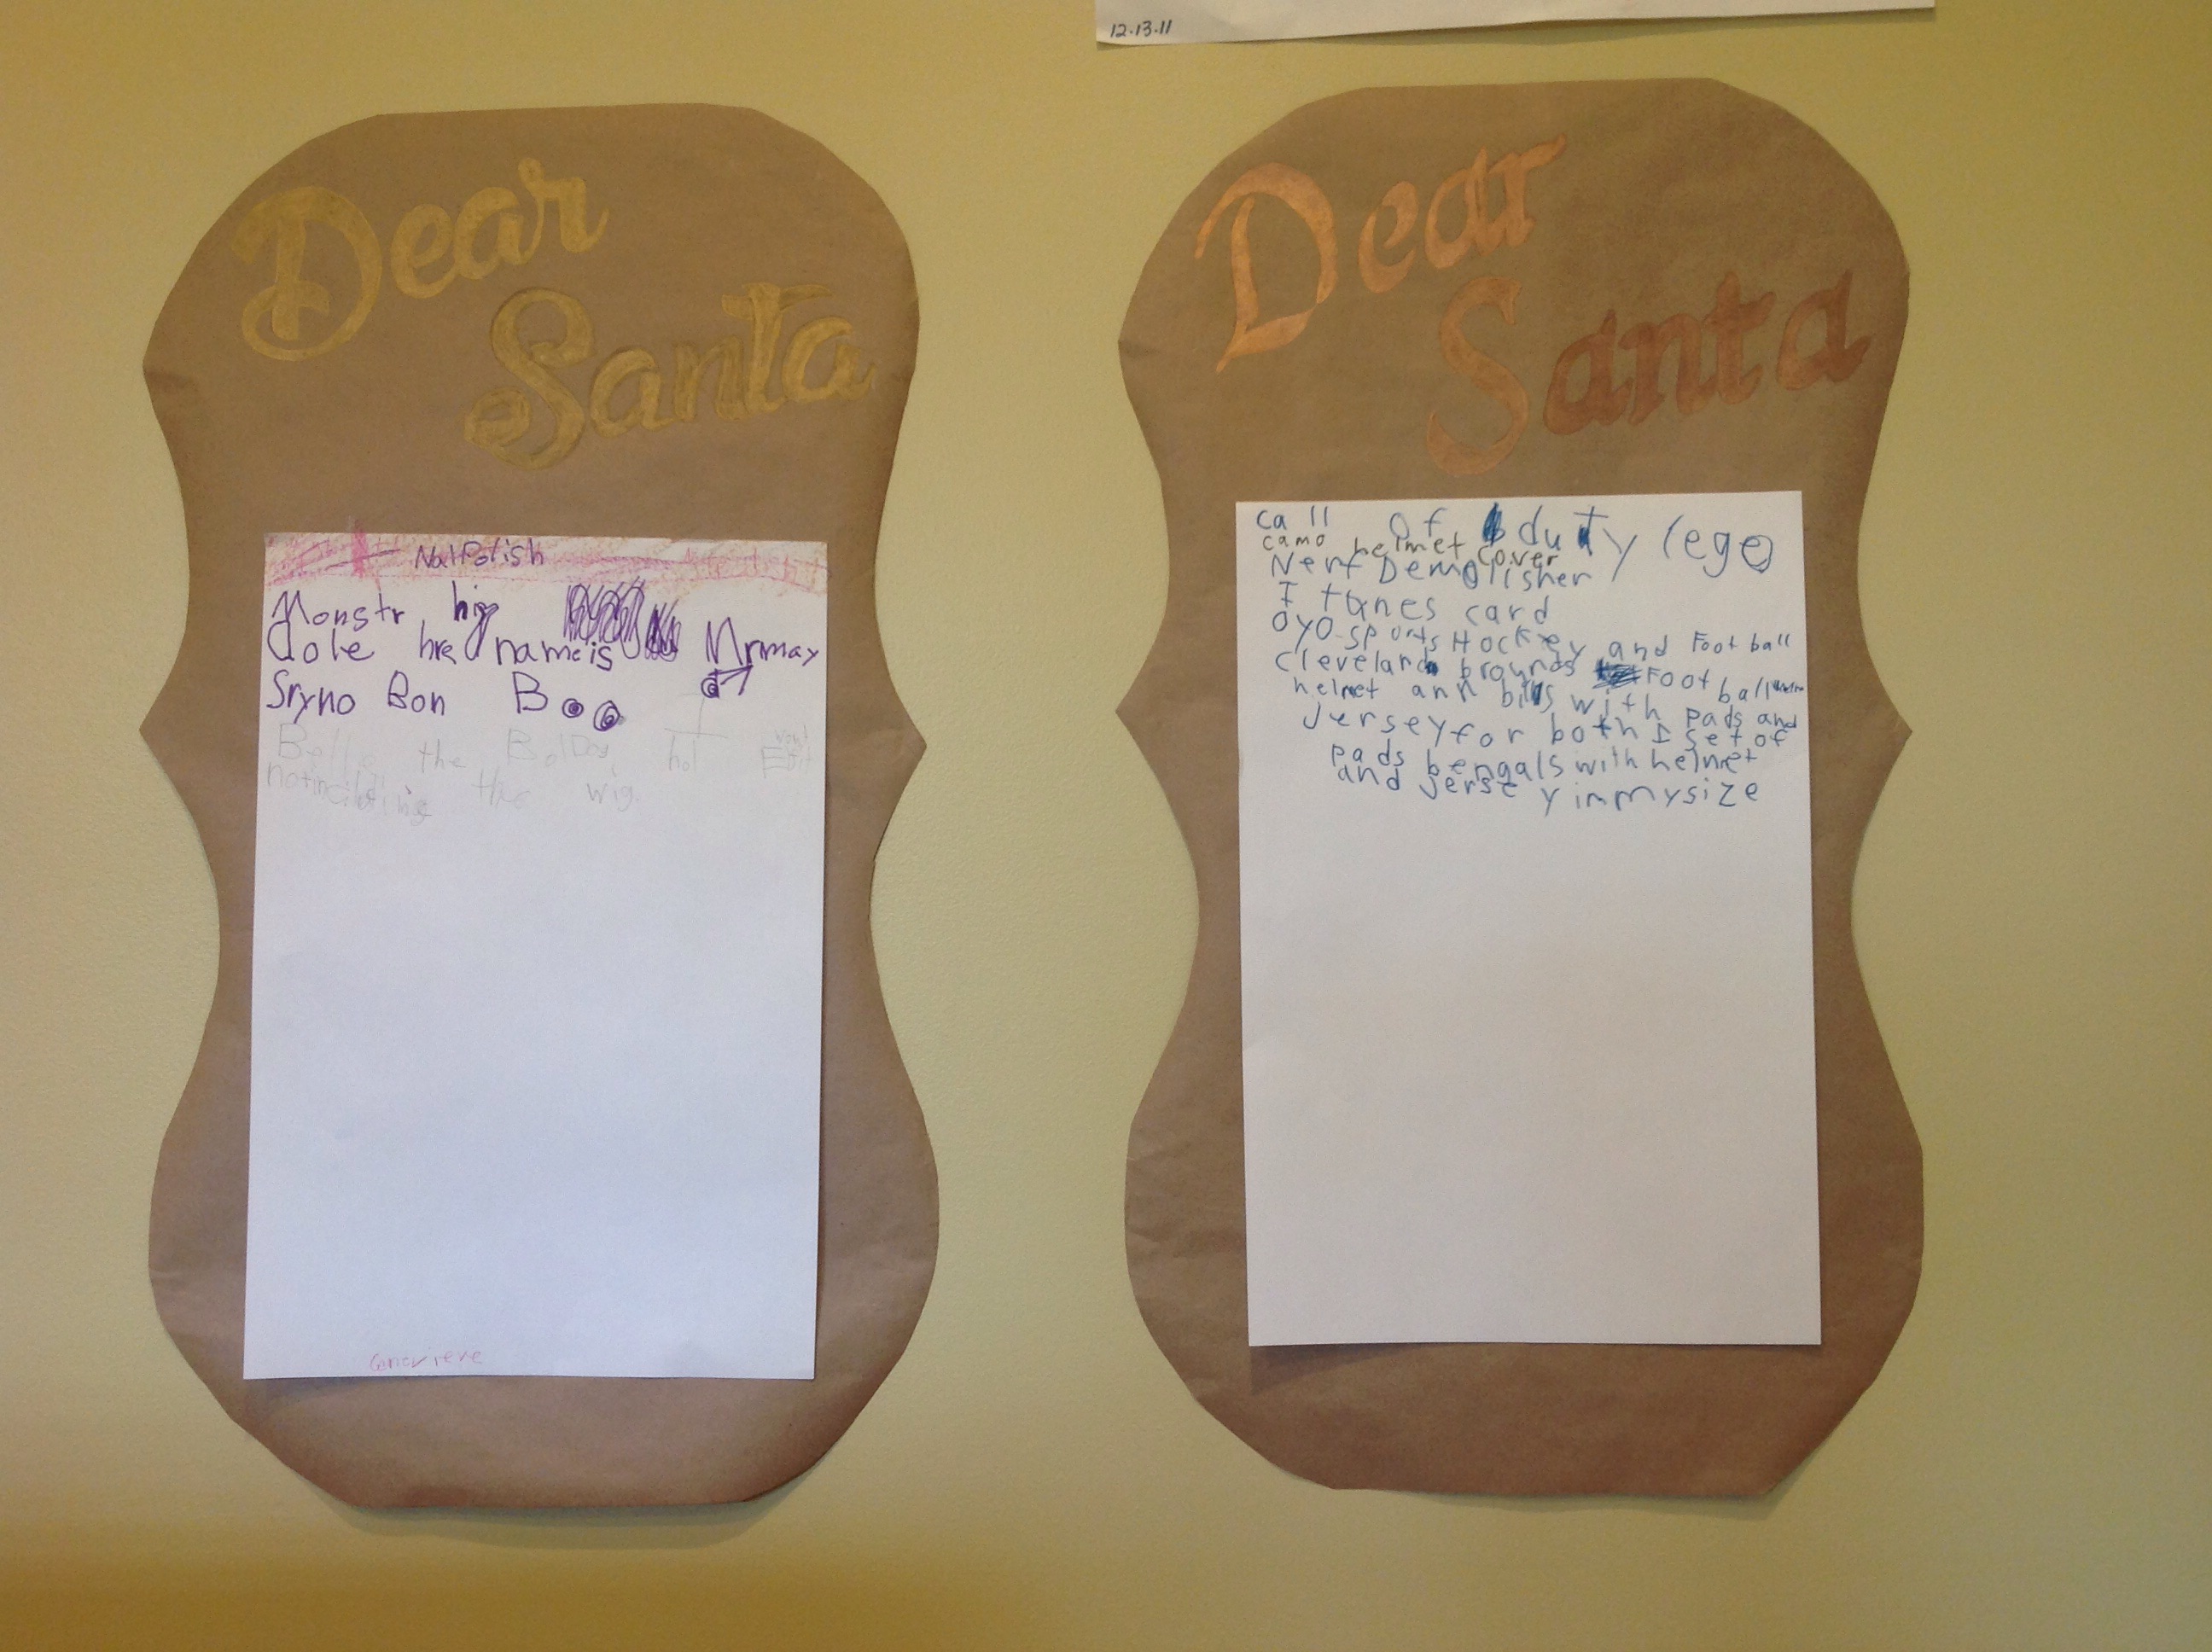 12.13.11
Dear
Santa
NalPolish
Monstr hig
Dole hre name is Mrmay
Sryno Bon Boo
the
hol
the wig.
Genevieve
Dear
Santa
call Of duty lego
camo helmet cover
Nerf Demolisher
I tunes card
oyo sports Hockey and Foot ball
Cleveland brounds Foot ball
helmet ann bills with pads and
jersey for both 1 set of
pads bengals with helmet
and jersey in my size